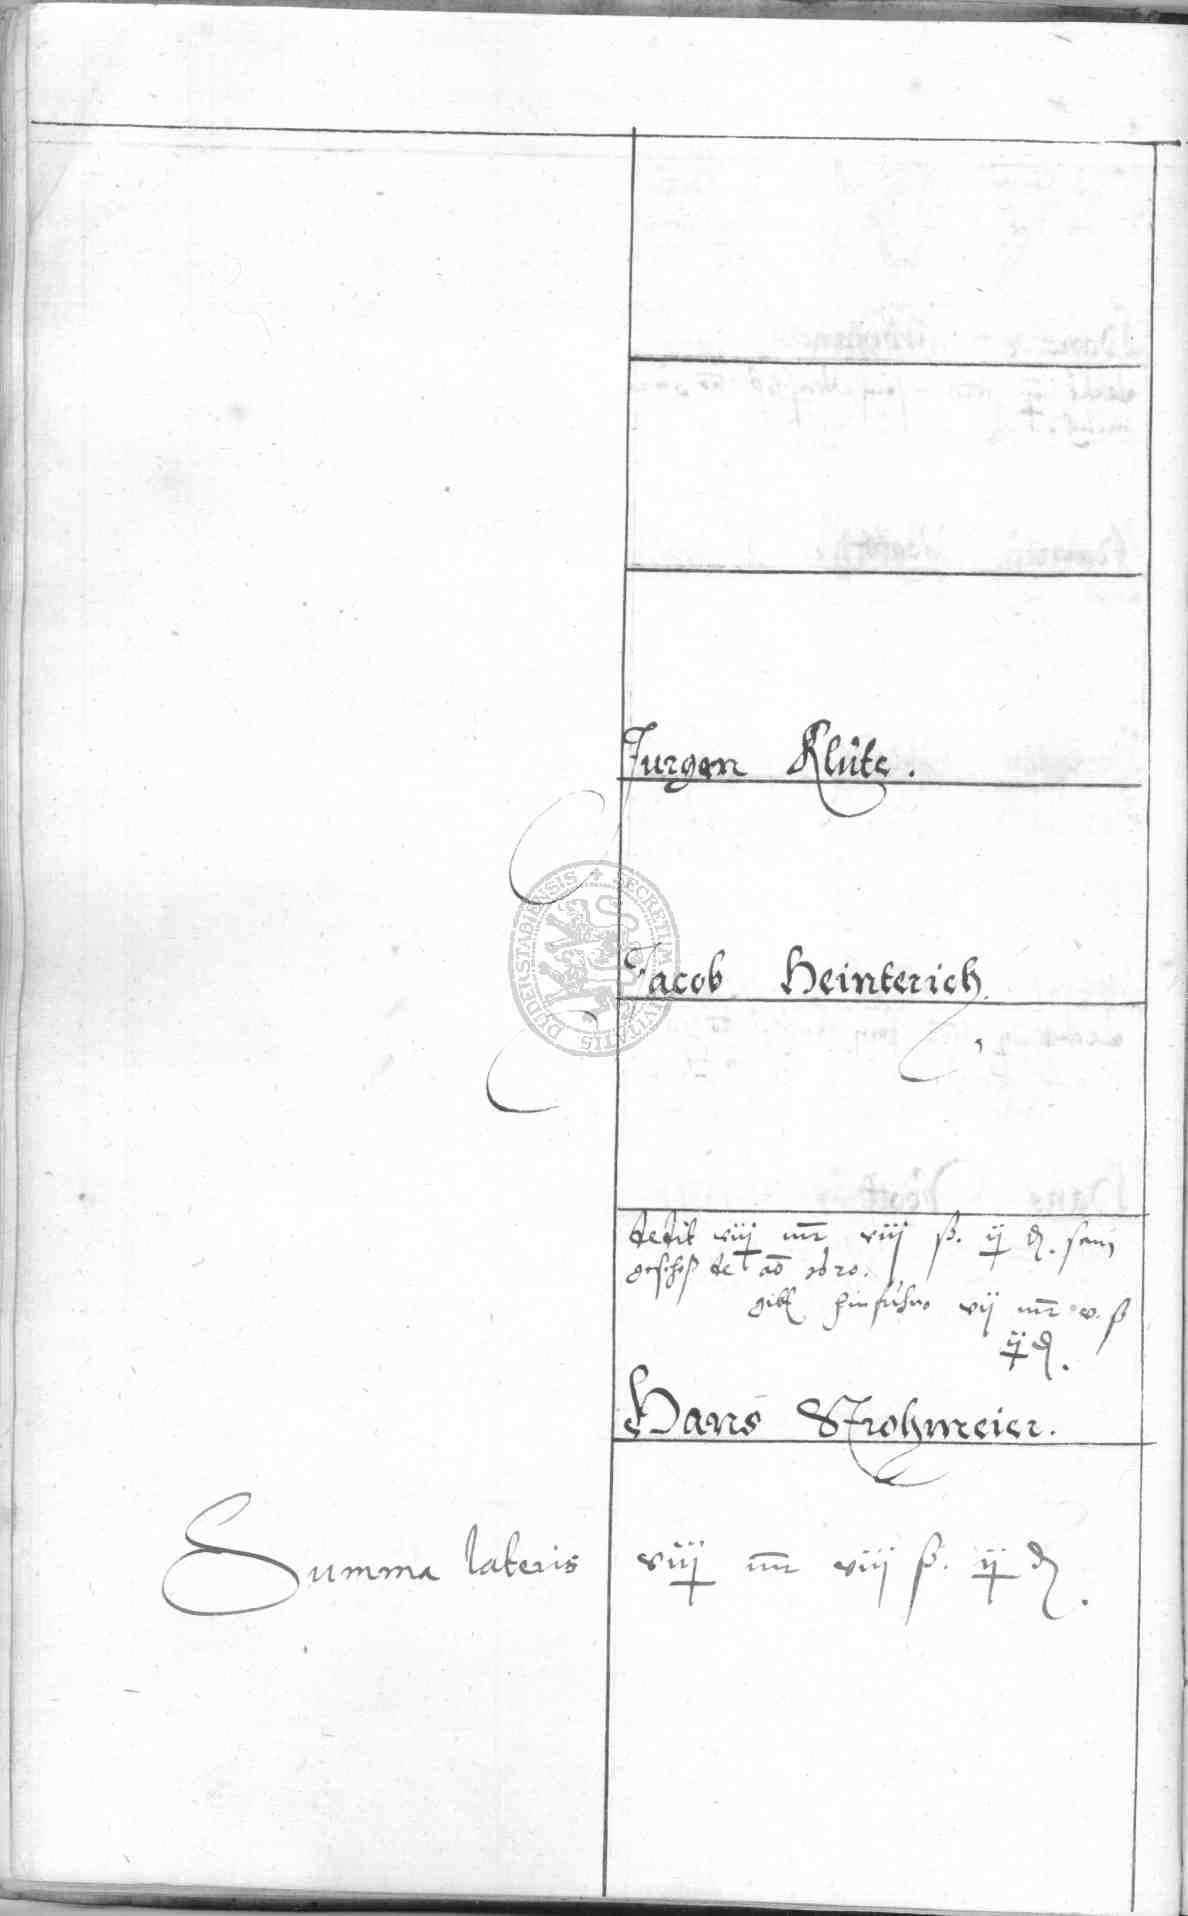 Jurgen Klüte.
Jacob Heinterich
SECRETUM CIVITATIS DUDERSTADIENSIS
dedit viij mr viij ß. ij ₰. sein
geschoß de ao 1620.
gibt hinfuhro vij mr v. ß
ij ₰.
Hans Strohmeier.
Summa lateris viij mr viij ß. ij ₰.